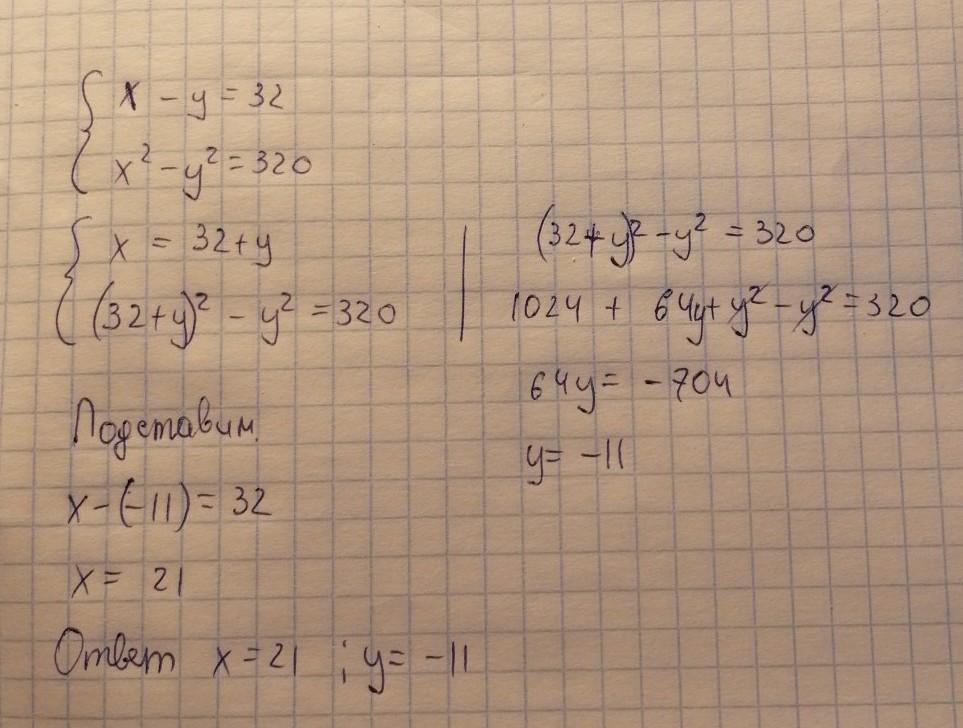 x - y = 32
x² - y² = 320
x = 32+y
(32+y)² - y² = 320
(32+y)² - y² = 320
1024 + 64y + y² - y² = 320
64y = -704
y = -11
Подставим
x - (-11) = 32
x = 21
Ответ x = 21 ; y = -11